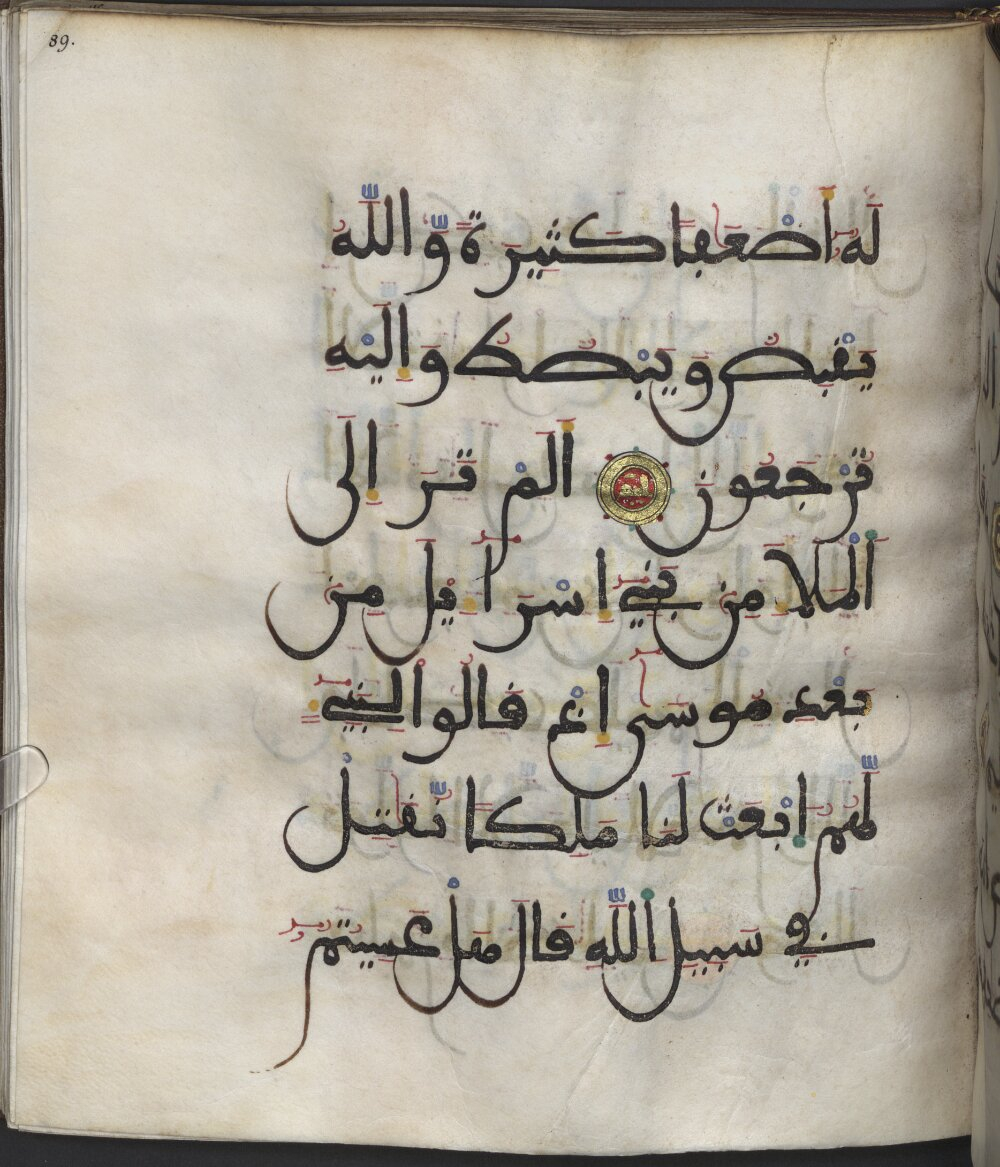 89.
له أضعفا كثيرة والله
يقبض ويبصط وإليه
ترجعون ألم تر إلى
الملإ من بني إسراءيل من
بعد موسى إذ قالوا لنبيء
لهم ابعث لنا ملكا نقتل
في سبيل الله قال هل عسيتم